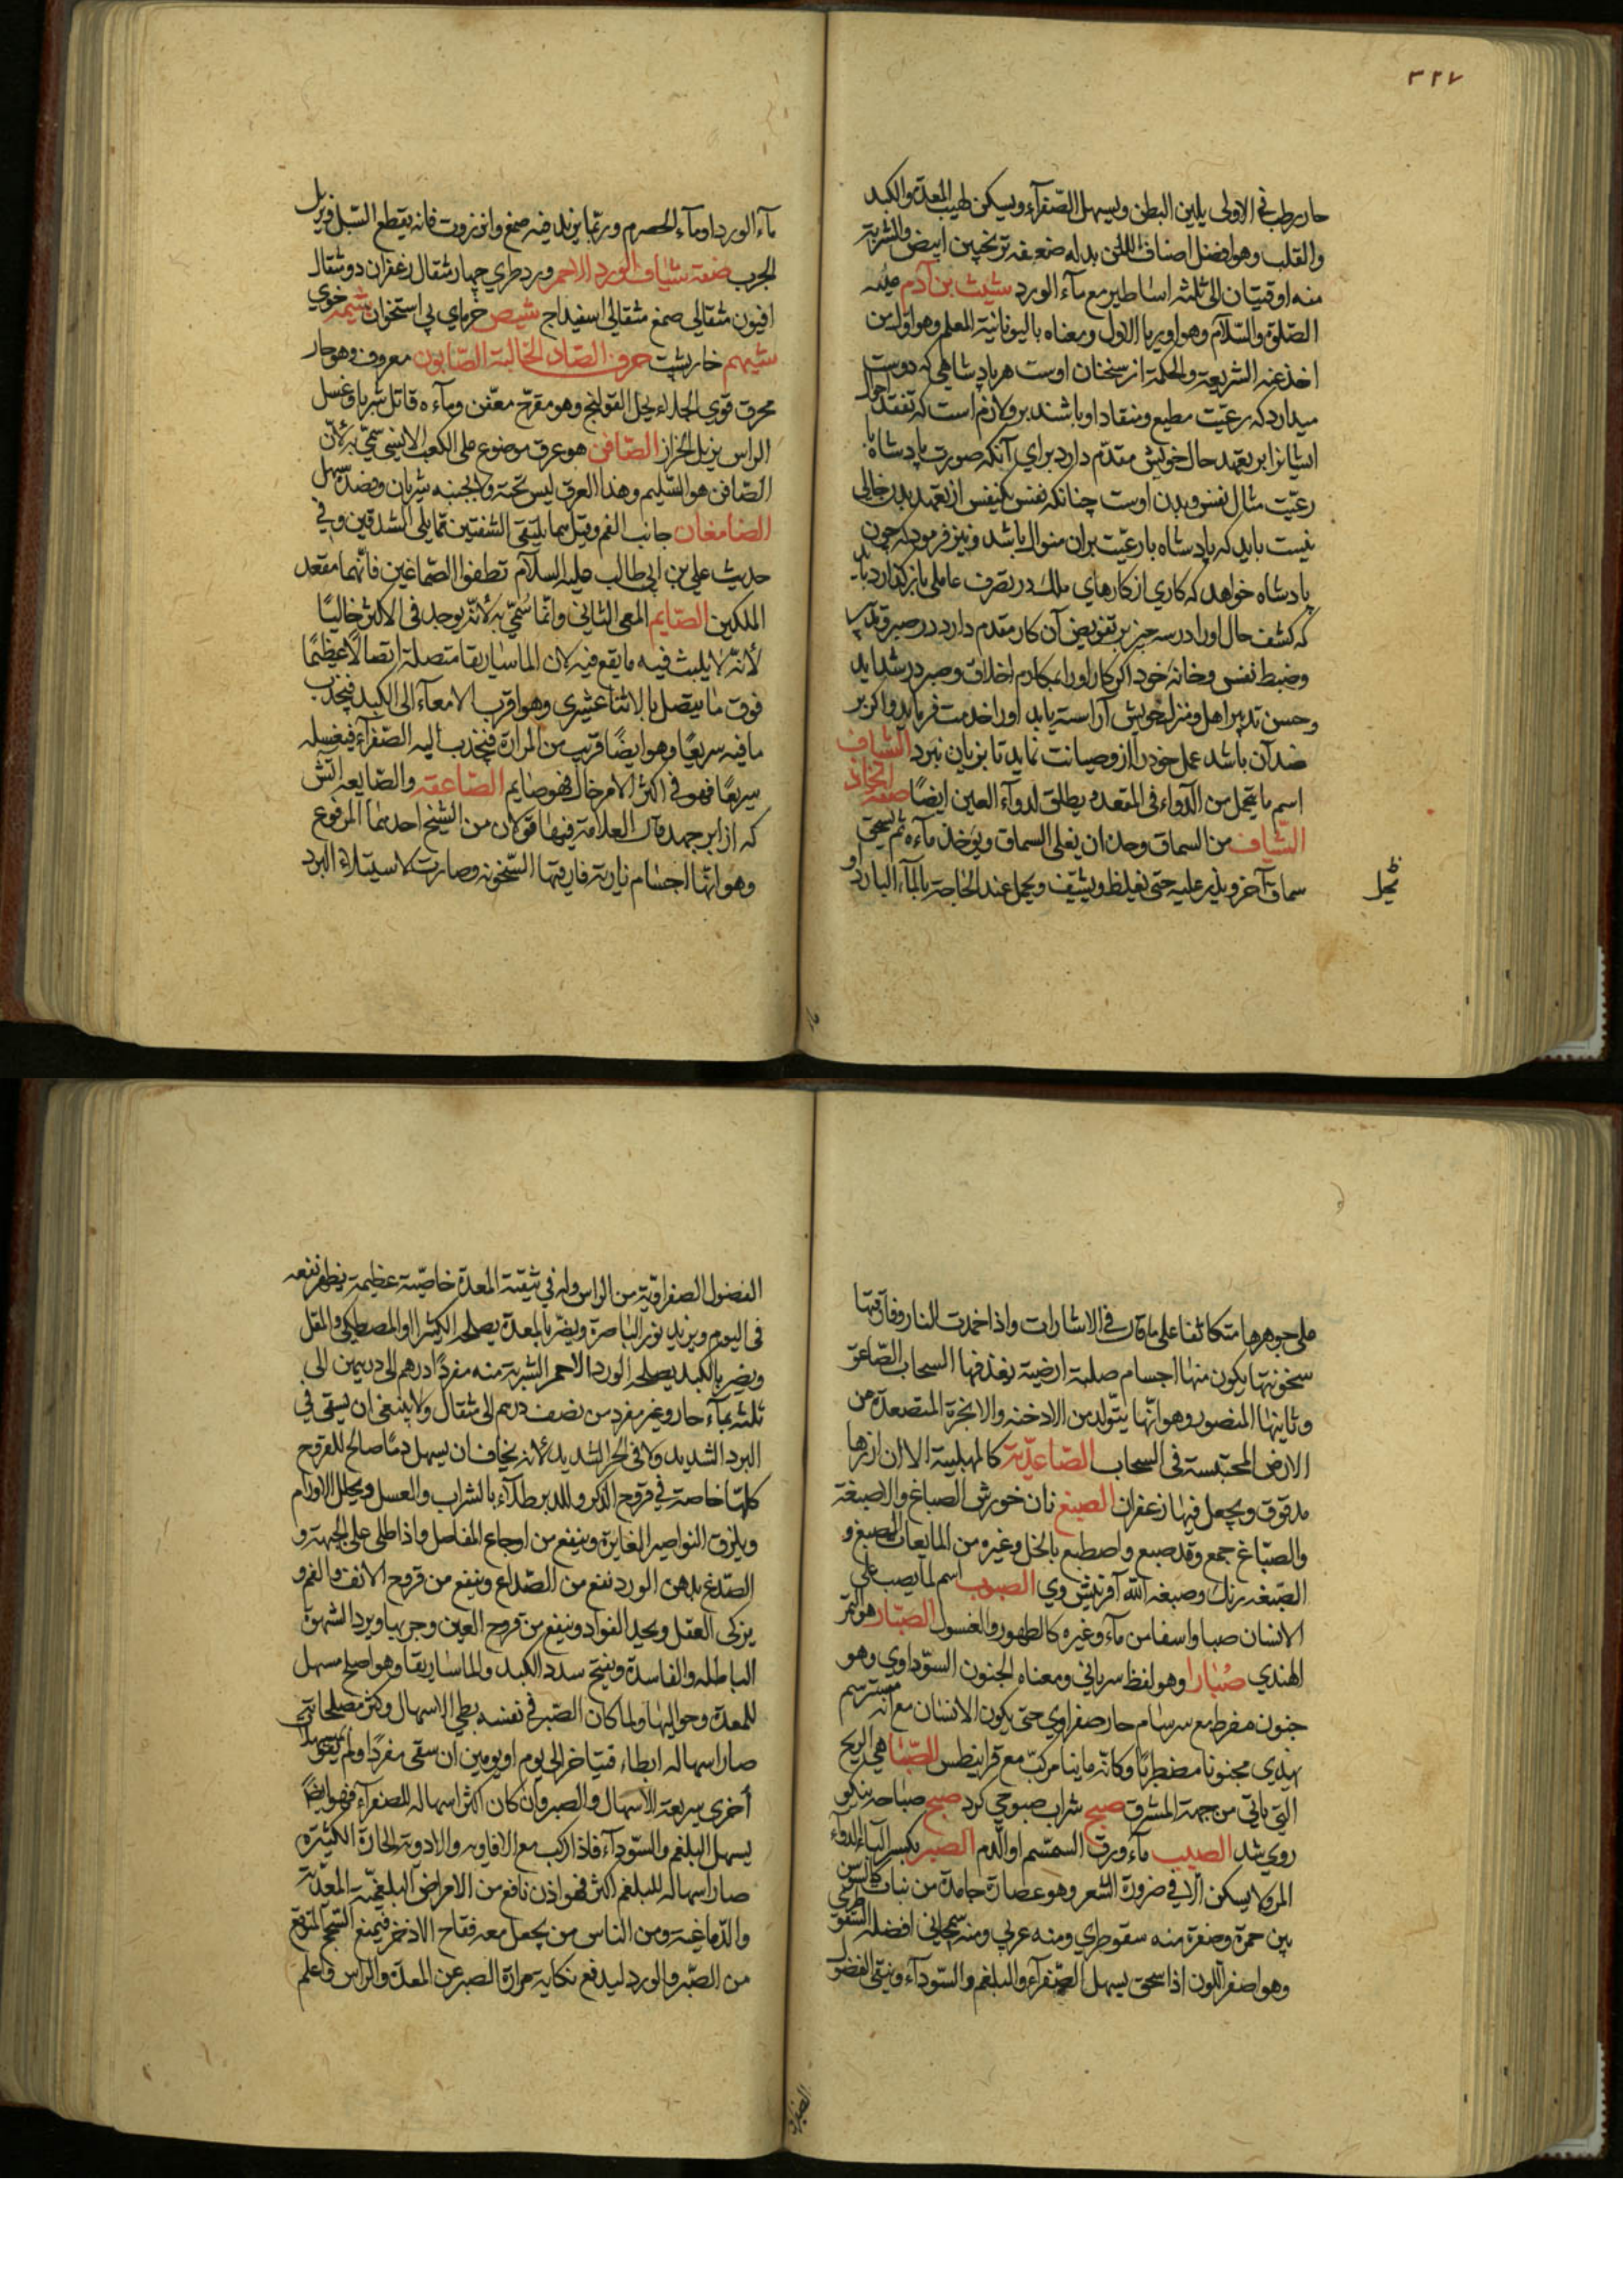 ٣٢٧
حار رطب فی الاولی یلین البطن ویسهل الصّفرآء ویسکن لهیب المعدة والکبد
والقلب وهو افضل اصناف المنّ بدله ضعفه ترنجبین ابیض والشربة
منه اوقیتان الی ثلثه اساطیر مع مآء الورد شیث بن آدم علیه
الصّلوة والسّلام وهو اوریا الاول ومعناه بالیونانیّة المعلم وهو اوّل من
اخذ عنه الشریعة والحکمة از سخنان اوست هر پادشاهی که دوست
میدارد که رعیّت مطیع ومنقاد او باشند برو لازم است که تفقد احوال
ایشانرا بر تعهد حال خویش مقدّم دارد برای آنکه صورت پادشاه با
رعیّت مثال نفس وبدن اوست چنانکه نفس یکنفس از تعهد بدن خالی
نیست باید که پادشاه با رعیّت بران منوال باشد ونیز فرمود که چون
پادشاه خواهد که کاری از کارهای ملک در تصرف عاملی باز گذارد باید
که کشف حال او را در سه چیز بر تفویض آن کار مقدم دارد در صبر وتدبیر
وضبط نفس وخانه خود اگر کار او را بمکارم اخلاق وصبر در شداید
وحسن تدبیر اهل ومنزل خویش آراسته یابد او را خدمت فرماید واگر بر
ضد آن باشد عمل خود را ازو صیانت نماید تا بزیان نبرد الشیاف
اسم ما یتحمل من الدّوآء فی المقعده ویطلق لدوآء العین ایضًا صفة اتخاذ
الشّیاف من السماق وحدن ان یغلی السماق ویوخذ مآءه ثم یسحق
سماق آخر ویذر علیه حتی یغلظ ویشیف ویحل عند الحاجة بالمآء البارد او
مآء الورد او مآء الحصرم وربّما یزید فیه صمغ وانزروت فانه یقطع السّبل ویزیل
الجرب صفة شیاف الورد الاحمر ورد طری چهار مثقال زعفران دو مثقال
افیون مثقالی صمغ مثقالی اسفیداج شیص خرمای بی استخوان شیمه خوی
شیهم خارپشت حرف الصّاد الخالیة الصّابون معروف وهو حار
محرق قوی الجلاء یحل القولنج وهو مقرّح معفّن ومآءه قاتل شربا وغسل
الراس یزیل الحزاز الصّافن هو عرق موضوع علی الکعب الانسی سمّی به لأنّ
الصّافن هو السّلیم وهذا العرق لیس تحته ولا بجنبه شریان وفصده سهل
الصّامغان جانبا الفم وقیل هما ملتقی الشفتین ممّا یلی الشدقین وفی
حدیث علی بن ابی طالب علیه السلام نظفوا الصّماغین فأنّهما مقعد
الملکین الصّایم المعی الثانی وانّما سُمّی به لأنّه یوجد فی الاکثر خالیًا
لأنّه لا یلبث فیه ما یقع فیه لان الماساریقا متصلة اتصالًا عظیمًا
فوق ما یتصل بالاثنا عشری وهو اقرب الامعآء الی الکبد فیجذب
ما فیه سریعًا وهو ایضًا قریب من المرارة فینجذب الیه الصّفرآء فیغسله
سریعًا فهو فی اکثر الامر خال فهو صایم الصّاعقة والصّایعه آتش
که از ابر جهد قال العلامة فیها قولان من الشیخ احدهما المرفوع
وهو انّها اجسام ناریة فارقتها السّخونه وصارت لاستیلاء البرد
علی جوهرها متکاثفا علی ما قال فی الاشارات واذا خمدت النار وفارقتها
سخونتها یکون منها اجسام صلبة ارضیة یغذفها السحاب الصّاعق
وثانیها المنصور وهو انّها یتّولد من الادخنه والابخرة المتصعدة من
الارض المحتبسة فی السحاب الصّاعدیّة کالمهلبیة الا ان ارزها
مدقوق ویجعل فیها زعفران الصبغ نان خورش الصباغ والاصبغة
والصبّاغ جمع وقد صبغ واصطبغ بالخل وغیره من المایعات الصبغ و
الصّبغه رنک وصبغة الله آفرینش وی الصبوب اسم لما یصب علی
الانسان صبا واسفا من مآء وغیره کالطهور والغسول الصّبار هو التمر
الهندی صُبارا وهو لفظ سریانی ومعناه الجنون السوّداوی وهو
جنون مفرط مع سرسام حار صفراوی حتی یکون الانسان مع انه مسترسم
یهذی مجنونا مضطربًا وکانّه مانیا مرکبّ مع قرانیطس الصّبا هی الریح
التی یاتی من جهة المشرق صبح شراب صبوحی کرد صبح صباحة نیکو
روی شد الصبیب مآء ورق السمسم او الدّم الصبر بکسر الباء الدوآء
المر ولا یسکن الّا فی ضرورة الشعر وهو عصارة جامدة من نبات کالسوسن
بین حمرة وصفرة منه سقوطری ومنه عربی ومنه سمجانی افضله السّقوطری
وهو اصفر اللّون اذا سحق یسهل الصّفرآء والبلغم والسّودآء وینقی الفضول
الفضول الصفراویّة من الراس وله فی تنقیة المعدة خاصیّة عظیمة یظهر نفعه
فی الیوم ویزید نور الباصرة ویضرّ بالمعدة یصلحه الکثیرا والمصطکی والمقل
ویضر بالکبد یصلحه الورد الاحمر الشربة منه مفردًا درهم الی درهمین الی
ثلثه بمآء حار وغیر مفرد من نصف درهم الی مثقال ولا ینبغی ان یسقی فی
البرد الشدید ولا فی الحر الشدید لأنه یخاف ان یسهل دمًا صالح للقروح
کلها خاصة فی قروح الذکر والدبر طلآء بالشراب والعسل ویحلل الاورام
ویلزق النواصیر الغایرة وینفع من اوجاع المفاصل واذا طلی علی الجبهة و
الصّدغ بدهن الورد نفع من الصّداع وینفع من قروح الانف والفم و
یزکی العقل ویحید الفواد وینفع من قروح العین وجربها ویرد الشهوة
الباطله والفاسدة ویفتح سدد الکبد والماساریقا وهو اصلح مسهل
للمعدة وحوالیها ولما کان الصّبر فی نفسه بطی الاسهال وکثر مصلحاته
صار اسهاله ابطاء فیتاخر الی یوم او یومین ان سقی مفردًا ولم یقو بمسهلات
أخری سریعة الاسهال والصبر وان کان اکثر اسهاله للصفرآء فهو ایضًا
یسهل البلغم والسّودآء فاذا رکب مع الافاویه والادویة الحارّة الکثیره
صار اسهاله للبلغم اکثر فهو اذن نافع من الامراض البلغمیّة المعدّیة
والدّماغیة ومن الناس من یجعل معه فقاح الاذخر فیمنع السّحج المتوقع
من الصّبر والورد لیدفع نکایة مرارة الصبر عن المعدة والراس واعلم